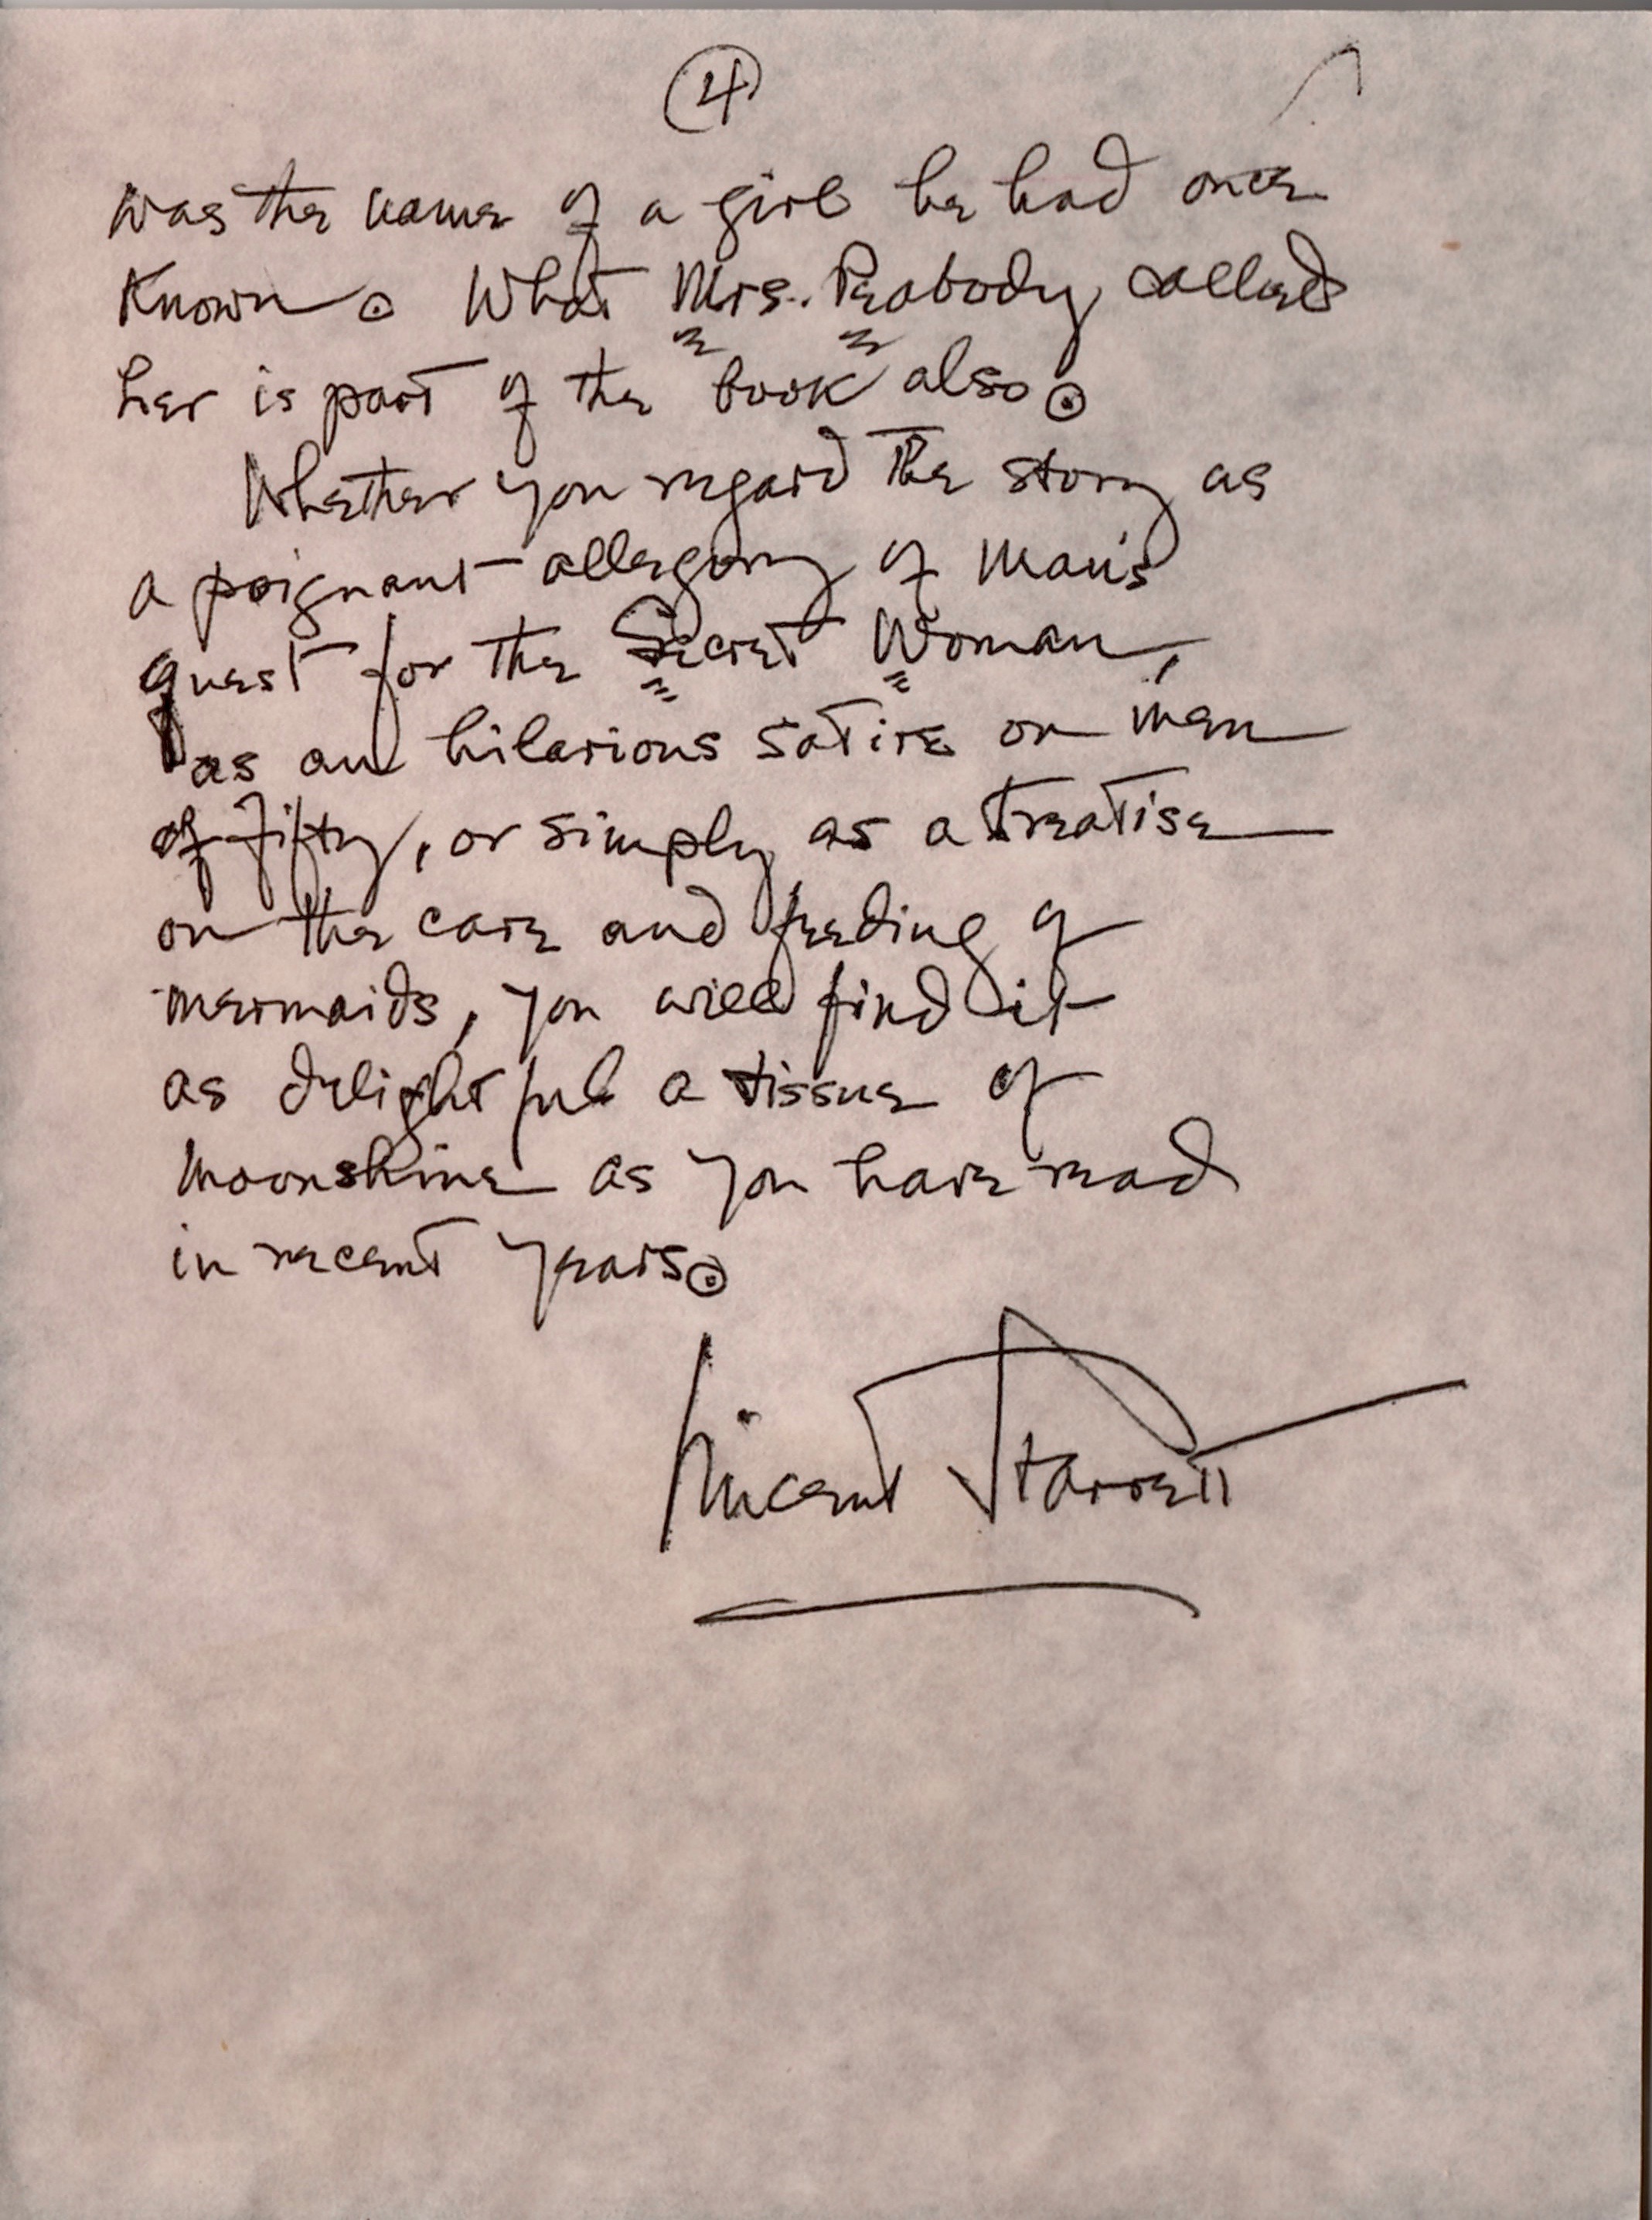 4
was the name of a girl he had once
known. What Mrs. Peabody called
her is part of the book also.
Whether you regard the story as
a poignant allegory of man's
quest for the Secret Woman,
as an hilarious satire on men
of fifty, or simply as a treatise
on the care and feeding of
mermaids, you will find it
as delightful a tissue of
moonshine as you have read
in recent years.
Vincent Starrett